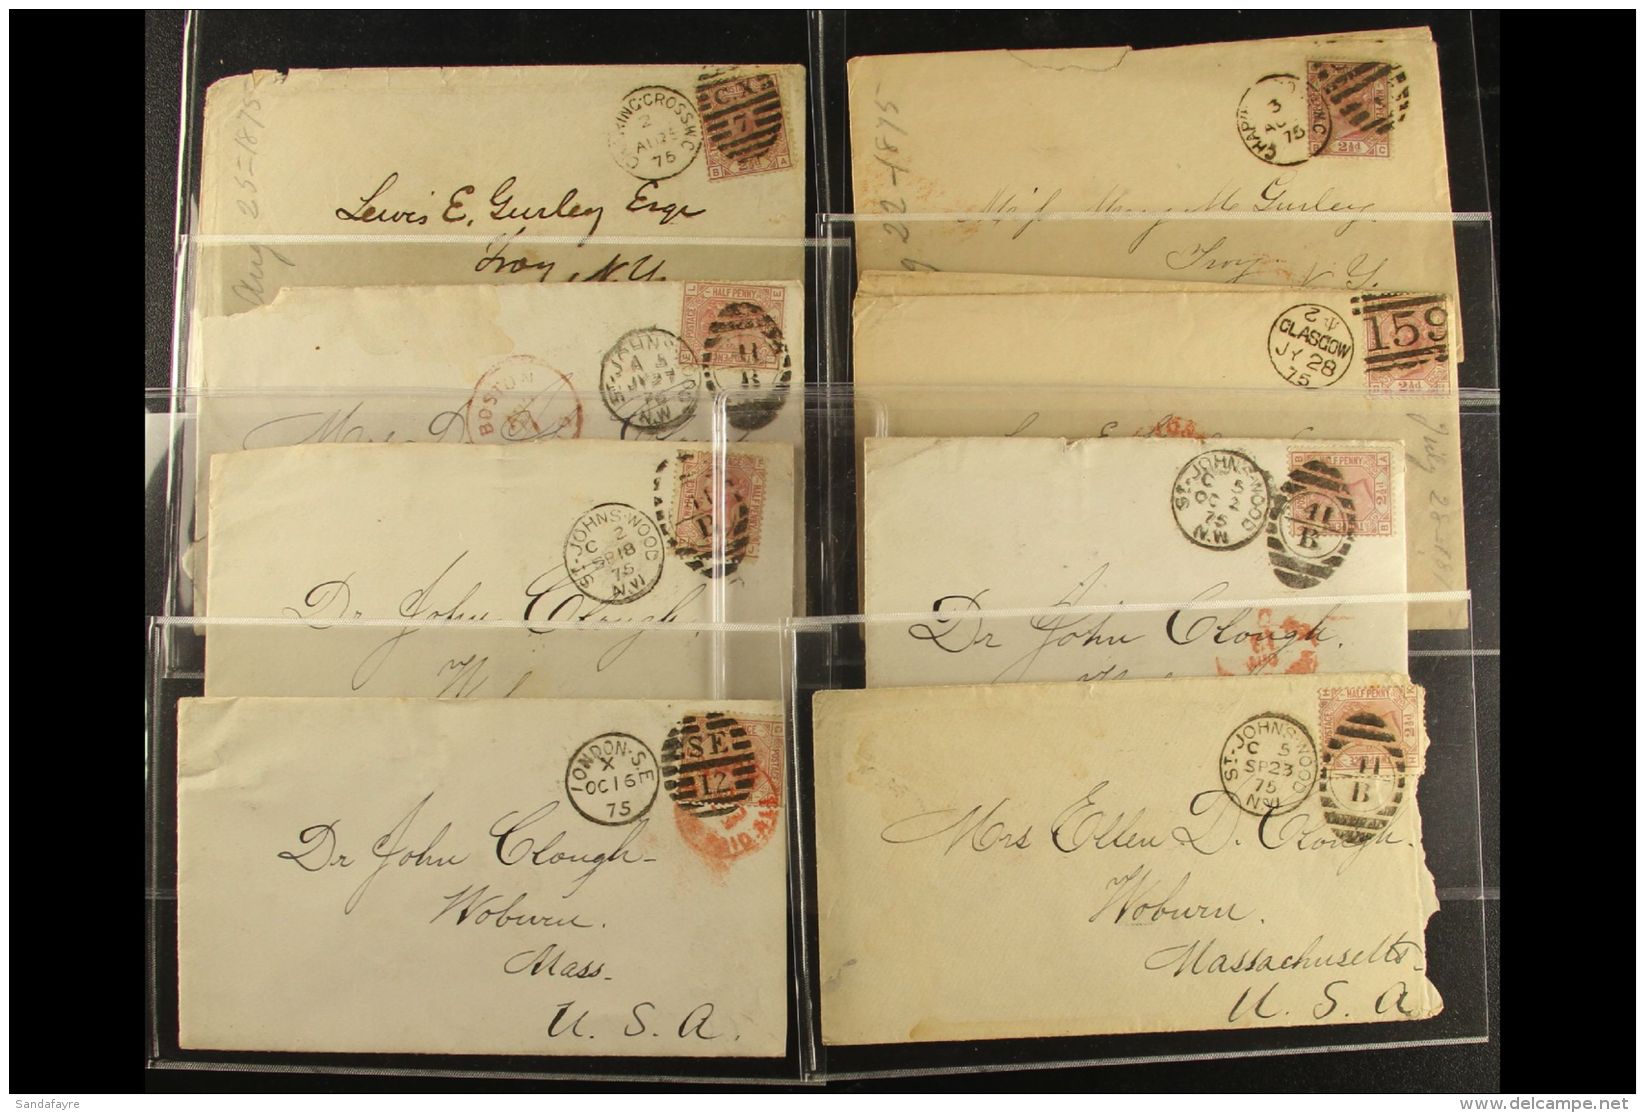 CHARING·CROSS·W.C
2
AU 25
75
C.X
7
2½d
B A
Aug 25-1875
Lewis E. Gurley Esqr
Troy N.Y.
3
75
2½d
B C
22-1875
Mary M Gurley
Troy
N Y.
L HALF PENNY E
POSTAGE
ST·JOHNS·WOOD
A 5
JY 27
75
N.W
11
B
BOSTON
2
GLASGOW
JY 28
75
159
2½d
July 28-
ST·JOHNS·WOOD
C 2
SP 18
75
N.W
B
Dr John Clough.
ST·JOHNS·WOOD
C 5
OC 2
75
N.W
B HALF PENNY A
2½d
11
B
Dr John Clough.
LONDON·S.E
X
OC 16
75
SE
12
POSTAGE
Dr John Clough
Woburn.
Mass.
U. S. A.
ST·JOHNS·WOOD
C 5
SP 23
75
N.W
H HALF PENNY K
2½d
11
B
Mrs Ellen D. Clough.
Woburn.
Massachusetts
U. S. A
Sandafayre
delcampe.net